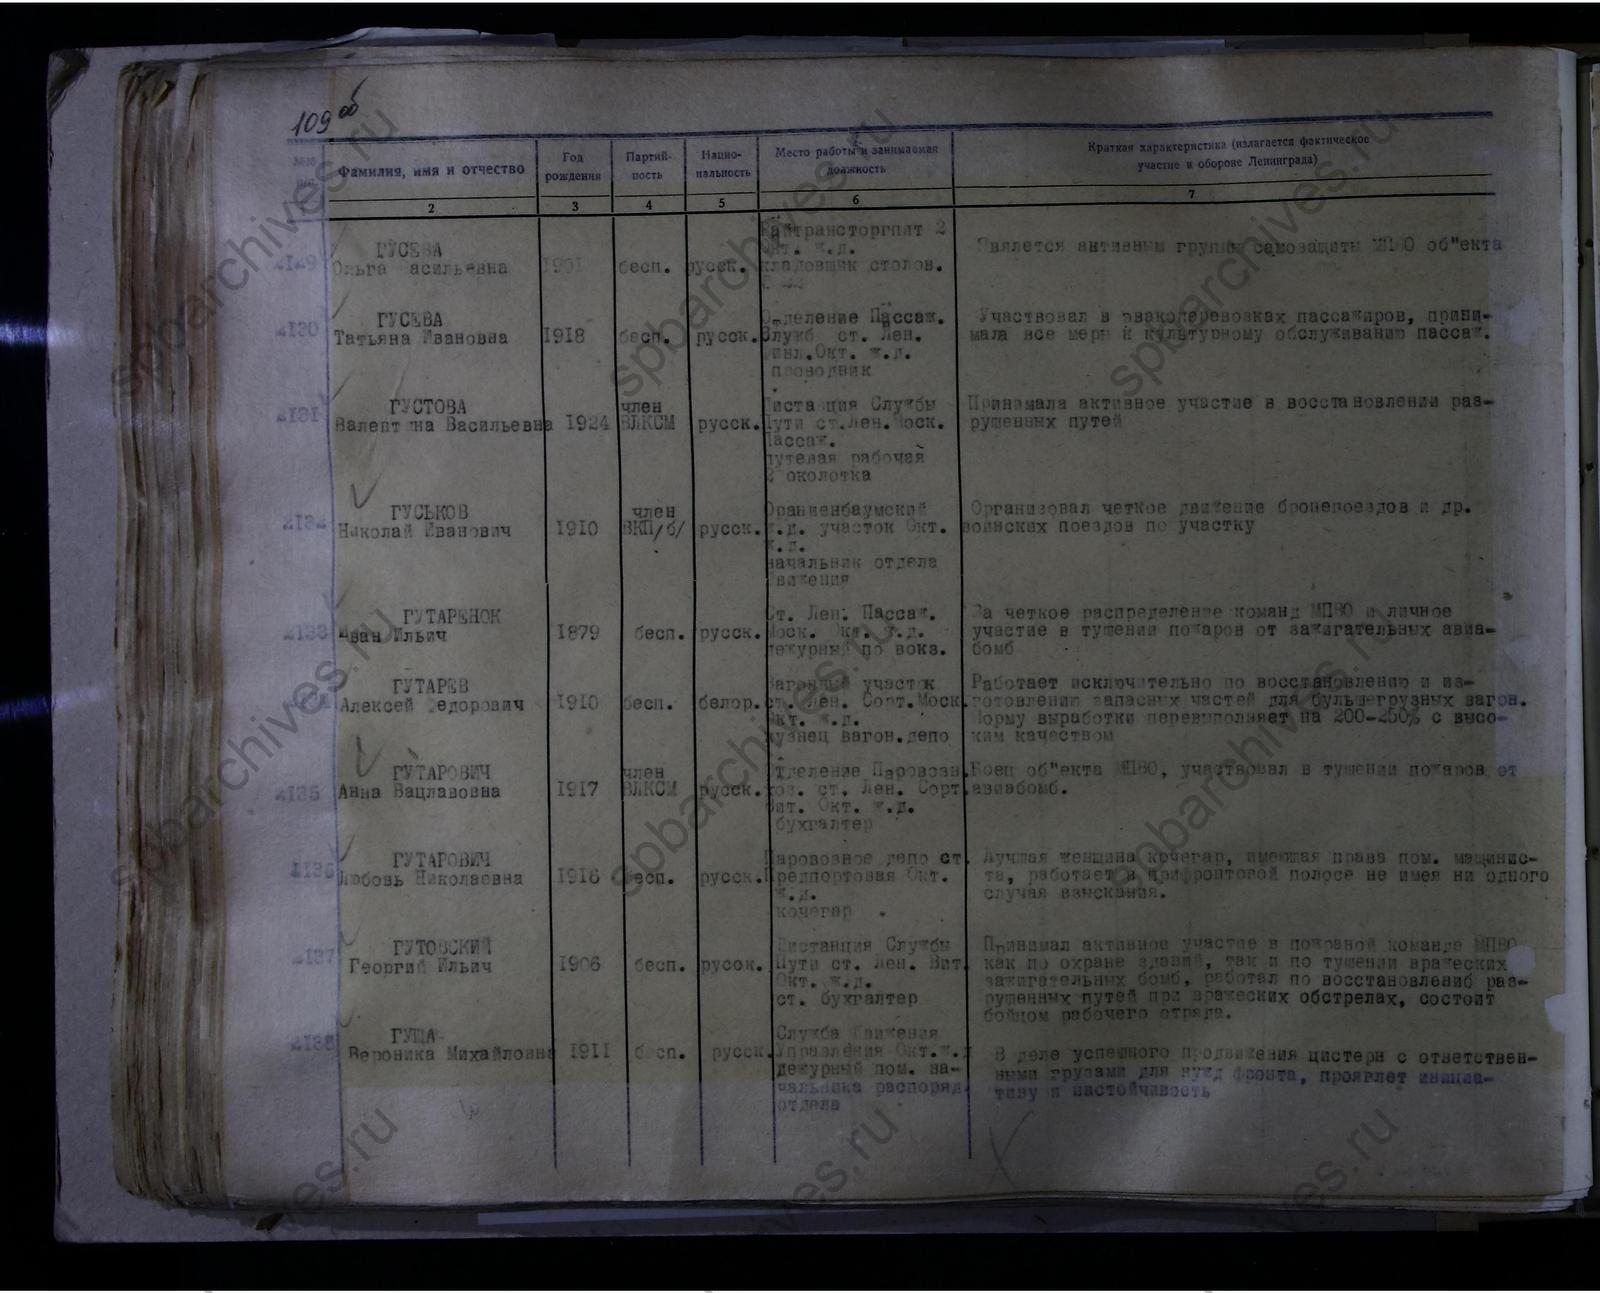 109 об
Фамилия, имя и отчество
Год рождения
Партий-
ность
Нацио-
нальность
Место работы и занимаемая
должность
Краткая характеристика (излагается фактическое
участие в обороне Ленинграда)
2 3 4 5 6 7
2129 ГУСЕВА
Ольга Васильевна 1901 бесп. русск.
Райтрансторгпит 2
Окт. ж.д.
кладовщик столов.
Является активным групп самозащиты МПВО об"екта
2130 ГУСЕВА
Татьяна Ивановна 1918 бесп. русск.
Отделение Пассаж.
Служб ст. Лен.
Финл.Окт. ж.д.
проводник
Участвовал в эвакоперевозках пассажиров, прини-
мала все меры к культурному обслуживанию пассаж.
2131 ГУСТОВА
Валентина Васильевна 1924 член
ВЛКСМ русск.
Дистанция Службы
Пути ст.Лен.Моск.
Пассаж.
путевая рабочая
2 околотка
Принимала активное участие в восстановлении раз-
рушенных путей
2132 ГУСЬКОВ
Николай Иванович 1910 член
ВКП/б/ русск.
Ораниенбаумский
ж.д. участок Окт.
ж.д.
начальник отдела
движения
Организовал четкое движение бронепоездов и др.
воинских поездов по участку
2133 ГУТАРЕНОК
Иван Ильич 1879 бесп. русск.
Ст. Лен. Пассаж.
Моск. Окт. ж.д.
дежурный по вокз.
За четкое распределение команд МПВО и личное
участие в тушении пожаров от зажигательных авиа-
бомб
ГУТАРЕВ
Алексей Федорович 1910 бесп. белор.
Вагонный участок
ст. Лен. Сорт.Моск.
Окт. ж.д.
кузнец вагон.депо
Работает исключительно по восстановлению и из-
готовлению запасных частей для большегрузных вагон.
Норму выработки перевыполняет на 200-250% с высо-
ким качеством
2135 ГУТАРОВИЧ
Анна Вацлавовна 1917 член
ВЛКСМ русск.
Отделение Паровозн.
хоз. ст. Лен. Сорт.
Вит. Окт. ж.д.
бухгалтер
Боец об"екта МПВО, участвовал в тушении пожаров от
авиабомб.
2136 ГУТАРОВИЧ
Любовь Николаевна 1916 бесп. русск.
Паровозное депо ст.
Предпортовая Окт.
ж.д.
кочегар
Лучшая женщина кочегар, имеющая права пом. машинис-
та, работает в прифронтовой полосе не имея ни одного
случая взыскания.
2137 ГУТОВСКИЙ
Георгий Ильич 1906 бесп. русск.
Дистанция Службы
Пути ст. Лен. Вит.
Окт. ж.д.
ст. бухгалтер
Принимал активное участие в пожарной команде МПВО
как по охране зданий, так и по тушении вражеских
зажигательных бомб, работал по восстановлениб раз-
рушенных путей при вражеских обстрелах, состоит
бойцом рабочего отряда.
2138 ГУЩА
Вероника Михайловна 1911 бесп. русск.
Служба Движения
Управления Окт.ж.д
дежурный пом. на-
чальника распоряд.
отдела
В деле успешного продвижения цистерн с ответствен-
ными грузами для нужд фронта, проявлет инициа-
тиву и настойчивость
spbarchives.ru